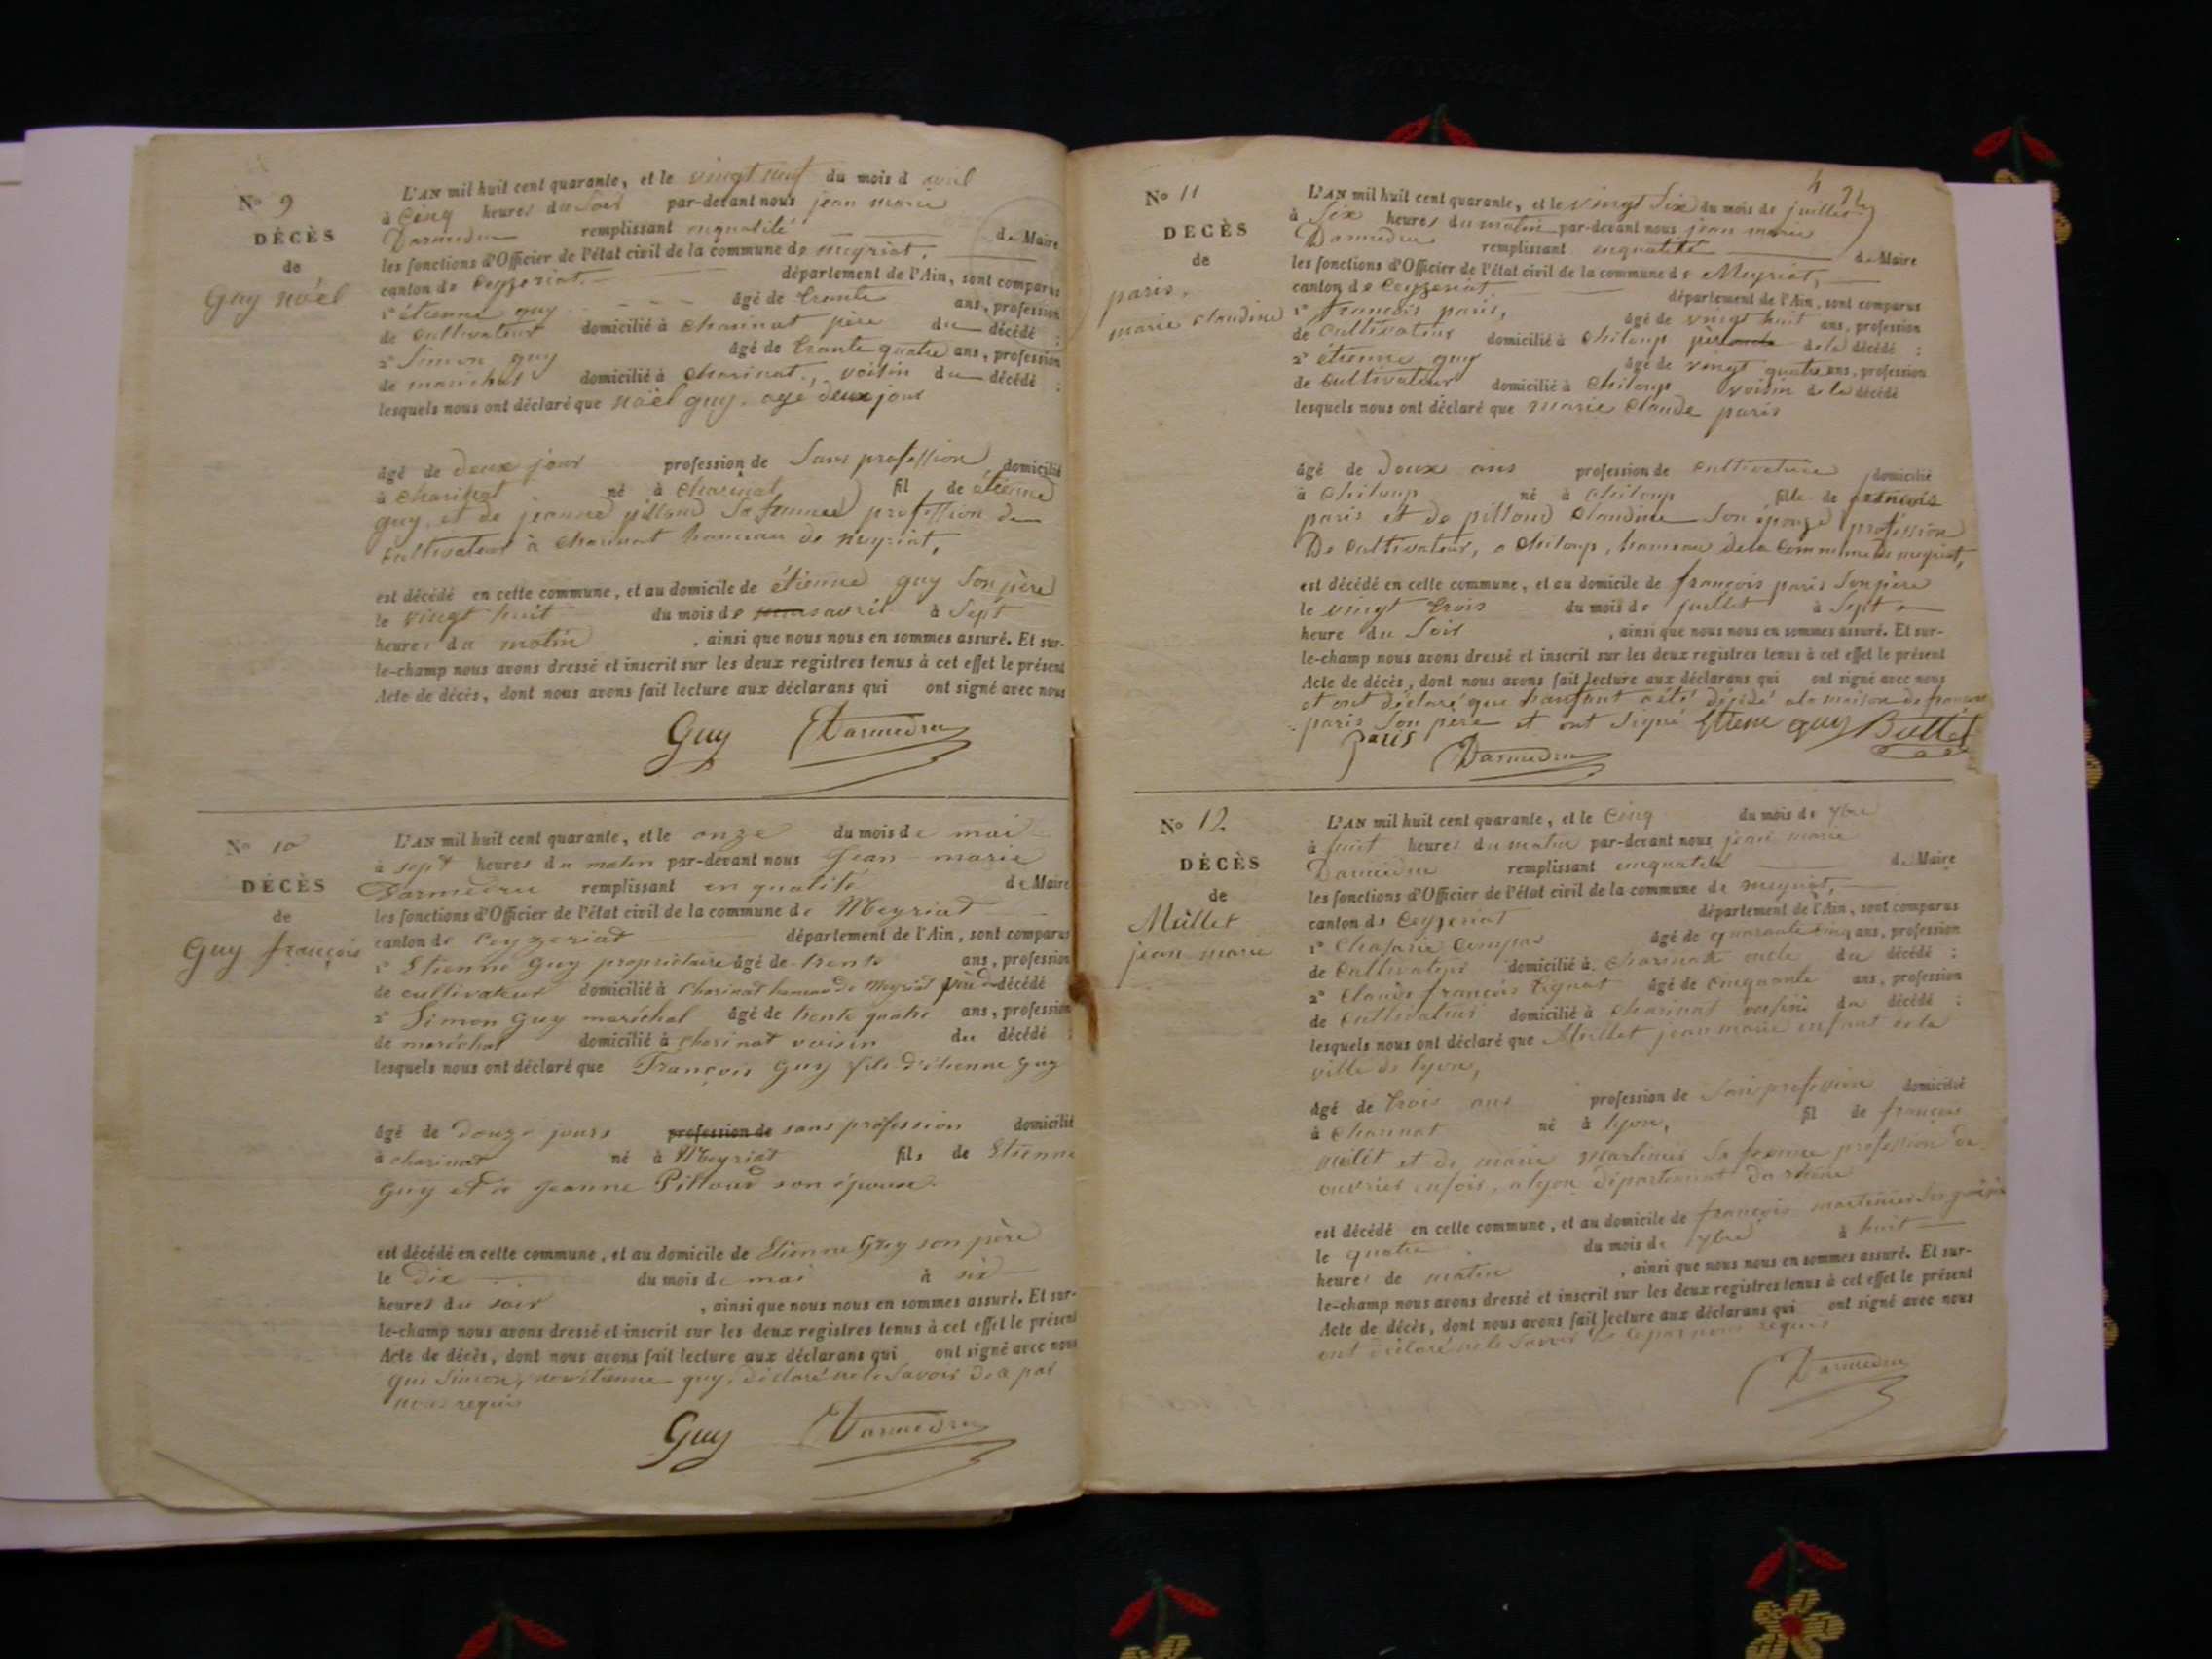 No 9
DÉCÈS
de
Guy noël
L'AN mil huit cent quarante, et le vingt neuf du mois d avril
à Cinq heures du Soir par-devant nous jean marie
Darmedru remplissant enqualité de Maire
les fonctions d'Officier de l'état civil de la commune de meyriat,
canton de Ceyzeriat. département de l'Ain, sont comparus
1° étienne guy âgé de trante ans, profession
de Cultivateur domicilié à Charinat père du décédé ;
2° Simon guy âgé de trante quatre ans, profession
de marichal domicilié à Charinat, voisin du décédé ;
lesquels nous ont déclaré que noël guy. agé deux jour
âgé de deux jour profession de Sans profession domicilié
à Charinat né à Charinat fil de étienne
guy, et de jeanne pilloud Sa femme profession de
Cultivateur à Charinat hameau de meyriat,
est décédé en cette commune, et au domicile de étienne guy Son père
le vingt huit du mois de avril à Sept
heures du matin , ainsi que nous nous en sommes assuré. Et sur-
le-champ nous avons dressé et inscrit sur les deux registres tenus à cet effet le présent
Acte de décès, dont nous avons fait lecture aux déclarans qui ont signé avec nous
Guy Darmedru
No 10
DÉCÈS
de
Guy françois
L'AN mil huit cent quarante, et le onze du mois de mai
à sept heures du matin par-devant nous Jean-marie
Darmedru remplissant en qualité de Maire
les fonctions d'Officier de l'état civil de la commune de Meyriat
canton de Ceyzeriat département de l'Ain, sont comparus
1° Etienne Guy propriétaire âgé de trente ans, profession
de cultivateur domicilié à Charinat hameau de Meyriat père du décédé
2° Simon Guy maréchal âgé de trente quatre ans, profession
de maréchal domicilié à Charinat voisin du décédé ;
lesquels nous ont déclaré que François Guy fils d'étienne Guy
âgé de douze jours profession de sans profession domicilié
à charinat né à Meyriat fils de Etienne
Guy et de Jeanne Pilloud son épouse
est décédé en cette commune, et au domicile de Etienne Guy son père
le dix du mois de mai à six
heures du soir , ainsi que nous nous en sommes assuré. Et sur-
le-champ nous avons dressé et inscrit sur les deux registres tenus à cet effet le présent
Acte de décès, dont nous avons fait lecture aux déclarans qui ont signé avec nous
que Simon, guy, déclaré ne le Savoir de ce par
nous requis
Guy Darmedru
No 11
DÉCÈS
de
paris,
marie claudine
L'AN mil huit cent quarante, et le vingt Six du mois de juillet
à Six heures du matin par-devant nous jean marie
Darmedru remplissant enqualité de Maire
les fonctions d'Officier de l'état civil de la commune de Meyriat,
canton de Ceyzeriat département de l'Ain, sont comparus
1° françois paris, âgé de vingt huit ans, profession
de Cultivateur domicilié à Chiloup père de la décédé ;
2° étienne guy âgé de vingt quatre ans, profession
de Cultivateur domicilié à Chiloup voisin de la décédé
lesquels nous ont déclaré que marie Claude paris
âgé de Doux ans profession de Cultivatrice domicilié
à Chiloup né à Chiloup fille de françois
paris et de pilloud Claudine Son épouze profession
De Cultivateur, a Chiloup, hameau de la Commune de meyriat,
est décédé en cette commune, et au domicile de françois paris Son père
le vingt trois du mois de juillet à Sept
heure du Soir , ainsi que nous nous en sommes assuré. Et sur-
le-champ nous avons dressé et inscrit sur les deux registres tenus à cet effet le présent
Acte de décès, dont nous avons fait lecture aux déclarans qui ont signé avec nous
et ont déclaré que a été a la maison de françois
paris Son père et ont Signé Etiene guy Buttet
paris Darmedru
No 12
DÉCÈS
de
Mullet
jean marie
L'AN mil huit cent quarante, et le Cinq du mois de 7bre
à huit heures du matin par-devant nous jean marie
Darmedru remplissant enqualité de Maire
les fonctions d'Officier de l'état civil de la commune de meyriat,
canton de Ceyzeriat département de l'Ain, sont comparus
1° âgé de quarante cinq ans, profession
de Cultivateur domicilié à Charinat oncle du décédé ;
2° Claude françois âgé de Cinquante ans, profession
de Cultivateur domicilié à Charinat voisin du décédé ;
lesquels nous ont déclaré que Mullet jean marie enfant de la
ville de lyon,
âgé de trois ans profession de Sans profession domicilié
à Charinat né à lyon, fil de françois
et de marie martinus Sa femme profession de
ouvrier , a lyon département du rhône
est décédé en cette commune, et au domicile de françois
le quatre du mois de 7bre à huit
heures de matin , ainsi que nous nous en sommes assuré. Et sur-
le-champ nous avons dressé et inscrit sur les deux registres tenus à cet effet le présent
Acte de décès, dont nous avons fait lecture aux déclarans qui ont signé avec nous
ont déclaré ne le Savoir de ce par nous requis
Darmedru